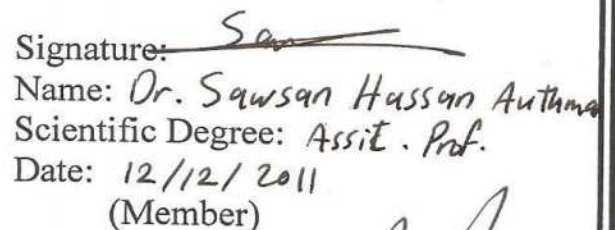 Signature:
Name: Dr. Sawsan Hassan Authman
Scientific Degree: Assit. Prof.
Date: 12/12/2011
(Member)